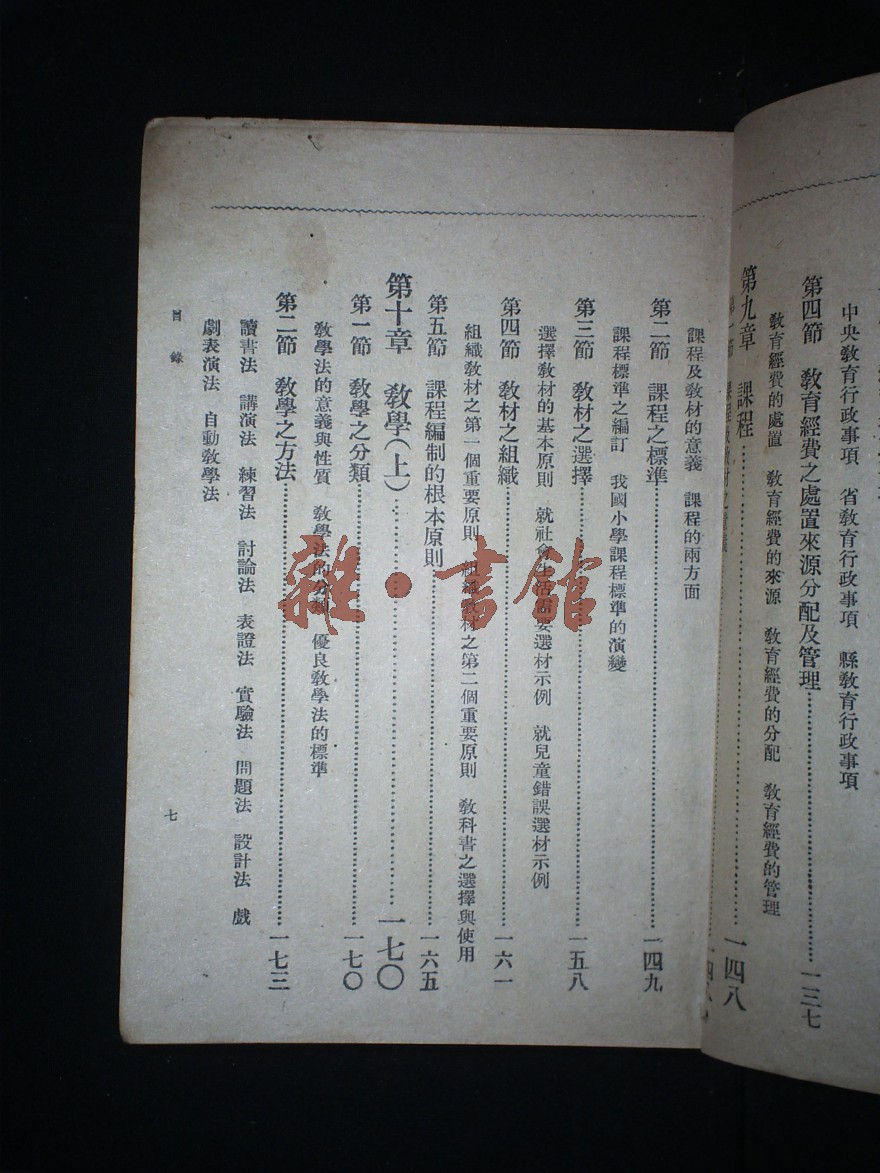 中央教育行政事項　省教育行政事項　縣教育行政事項
第四節　教育經費之處置來源分配及管理……一三七
教育經費的處置　教育經費的來源　教育經費的分配　教育經費的管理
第九章　課程……一四八
課程及教材的意義　課程的兩方面
第二節　課程之標準……一四九
課程標準之編訂　我國小學課程標準的演變
第三節　教材之選擇……一五八
選擇教材的基本原則　就社會生活需要選材示例　就兒童錯誤選材示例
第四節　教材之組織……一六一
組織教材之第一個重要原則　組織教材之第二個重要原則　教科書之選擇與使用
第五節　課程編制的根本原則……一六五
第十章　教學(上)……一七〇
第一節　教學之分類……一七〇
教學法的意義與性質　教學法的分類　優良教學法的標準
第二節　教學之方法……一七三
讀書法　講演法　練習法　討論法　表證法　實驗法　問題法　設計法　戲
劇表演法　自動教學法
目錄
七
雜·書館